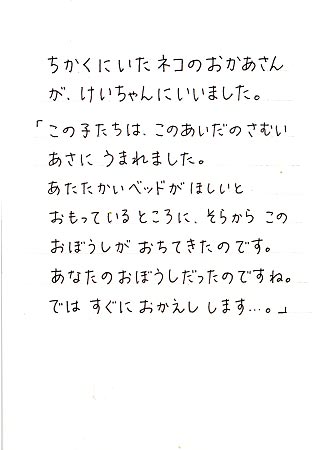 ちかくにいた ネコのおかあさん
が、けいちゃんにいいました。
「この子たちは、このあいだのさむい
あさに うまれました。
あたたかいベッドが ほしいと
おもっているところに、そらから この
おぼうしが おちてきたのです。
あなたのおぼうしだったのですね。
では すぐに おかえし します…。」